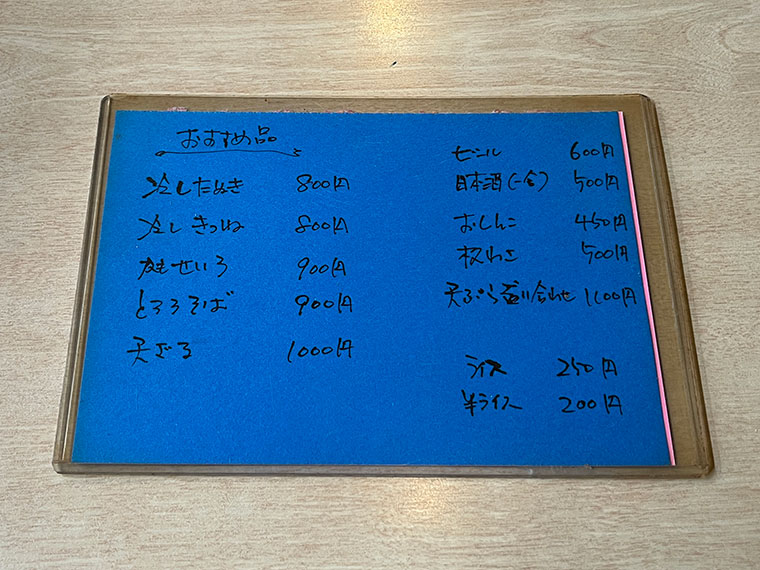 おすすめ品
冷したぬき 800円
冷しきつね 800円
鴨せいろ 900円
とろろそば 900円
天ざる 1000円
ビール 600円
日本酒(一合) 500円
おしんこ 450円
板わさ 500円
天ぷら盛り合わせ 1100円
ライス 250円
半ライス 200円